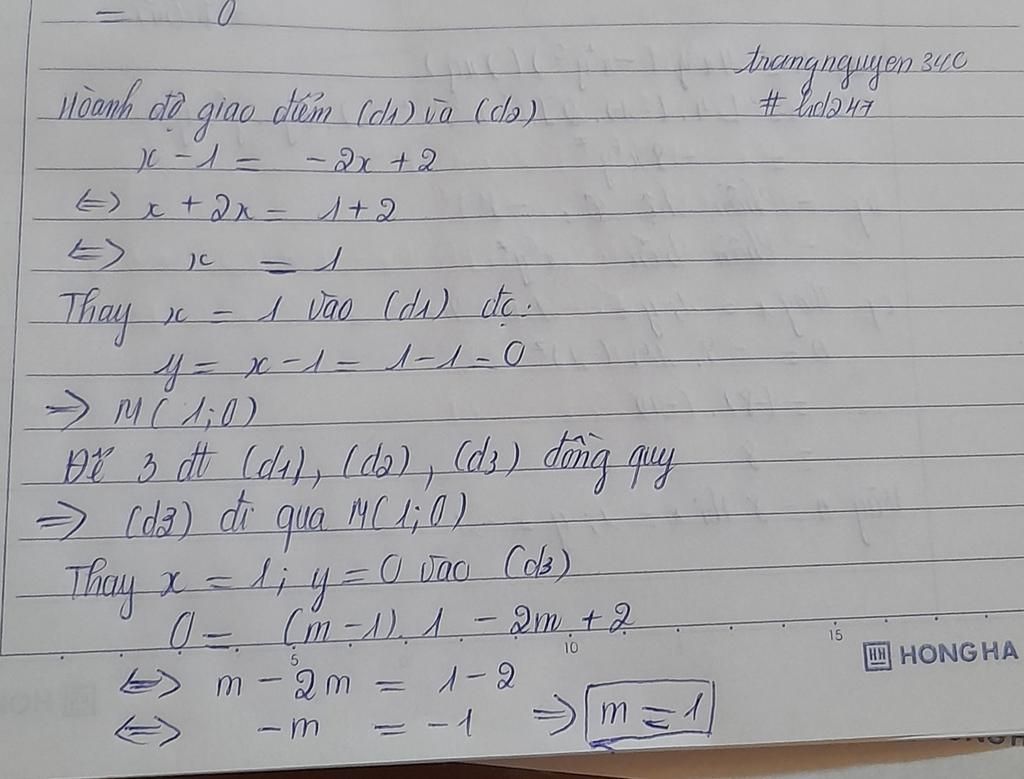 = 0
trangnguyen34c
Hoành độ giao điểm (d1) và (d2)
# hd247
x - 1 = - 2x + 2
<=> x + 2x = 1 + 2
<=> x = 1
Thay x = 1 vào (d1) đc:
y = x - 1 = 1 - 1 = 0
=> M(1;0)
Để 3 đt (d1), (d2), (d3) đồng quy
=> (d3) đi qua M(1;0)
Thay x = 1; y = 0 vào (d3)
0 = (m - 1).1 - 2m + 2
5 10 15
HH HONG HA
<=> m - 2m = 1 - 2
<=> -m = -1 => m = 1